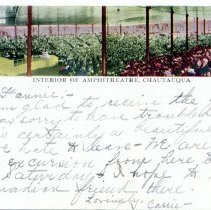 INTERIOR OF AMPHITHEATRE, CHAUTAUQUA
Fannie:-
am glad to receive the
was sorry to have troubled
is certainly a beautiful
We are
excursion from here
Saturday I hope
friend there.
Lovingly,
Carrie